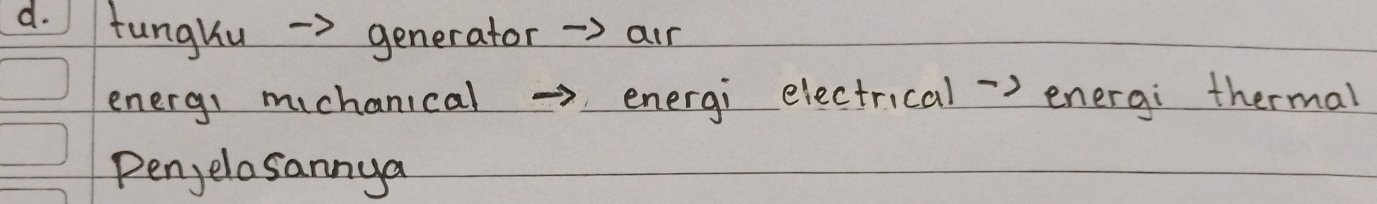 d. tungku -> generator -> air
energi michanical -> energi electrical -> energi thermal
Penjelasannya